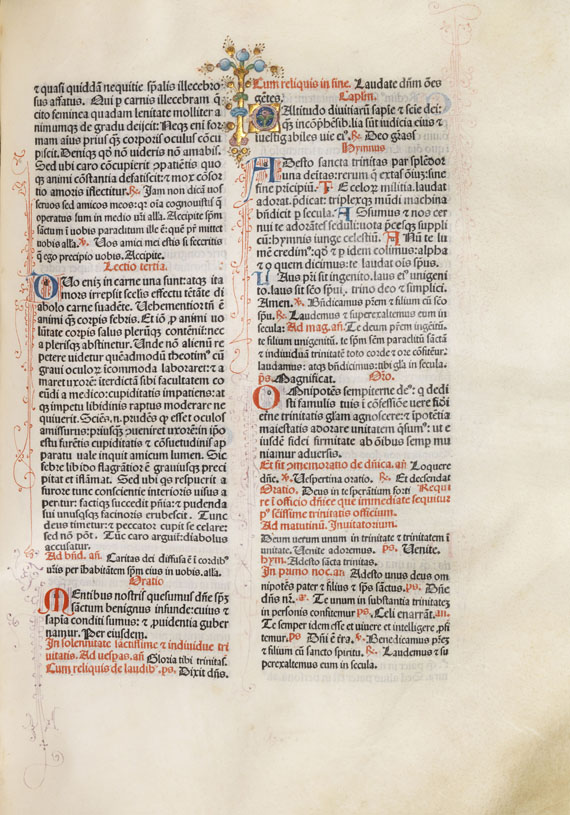 & quasi quiddā nequitie sp̄alis illecebro
sus affatus. Qui p carnis illecebram q̄
cito feminea quadam lenitate molliter a
nimumq; de gradu deijcit: Neq; eni for
mam aius prius q̄ corporis oculus cōcu
piscit. Deniq; qđ nō uideris nō amabis.
Sed ubi caro cōcupierit ꝯpatiētis quo
q; animi cōstantia defatiscit: & mox cōsor
tio amoris iflectitur. ℟. Jam non dicā uos
seruos sed amicos meos: q; oīa cognouistis q̄
operatus sum in medio ur̄i alla. Accipite spm̄
sāctum ī uobis paraditum ille ē: quē pr̄ mittet
uobis alla. ℣. Uos amici mei estis si feceritis
q̄ ego precipio uobis. Accipite.
Lectio tertia.
DUo enis in carne una sunt: atq; ita
mores irrepsit scelis effectu tētatæ di
abolo carne suadēte. Uehementiorū ē
animi q̄ corpis febris. Et iō, p animi uo
lūtate corpis salus plerūq; contēnit: nec
a plerisq; abstinetur. Unde nō alienū re
petere uidetur quēadmodū theotimꝰ cū
graui oculorꝝ icommoda laboraret: & a
maret uxorē: iterdictā sibi facultatem co
eūdi a medico: cupiditatis impatiens: at
q; impetu libidinis raptus moderare ne
quiuerit. Sciēs.n. prudēs q; esset oculos
amissurus: priusq; ꝯueniret uxorē: in ip̄o
estu furētis cupiditatis & cōsuetudinis ap
paratu uale inquit amicum lumen. Sic
febre libido flagrātior ē grauiusq; preci
pitat et iflāmat. Sed ubi q̄s respuerit a
furore tunc conscientie interioris uisus a
peritur: factiq; succedit pn̄ia: & pudenda
sui unusquisq; facinoris erubescit. Tunc
deus timetur: & peccator cupit se celare:
sed nō pōt. Tūc caro arguit: diabolus
accusatur.
Ad bn̄d. an̄. Caritas dei diffusa ē ī cordibꝰ
ur̄is per ihabitātem spm̄ eius in uobis. alla.
Oratio
MEntibus nostris quesumus dn̄e spm̄
sāctum benignus infunde: cuius &
sapia conditi sumus: & ꝓuidentia guber
namur. Per eiusdem.
In solennitate sāctissime & indiuidue tri
nitatis. Ad uesꝑas. an̄ Gloria tibi trinitas.
Cum reliquis de laudibꝰ. ps. Dixit dn̄s.
Cum reliquis in fine. Laudate dn̄m oēs
gētes. Caplm̄.
OAltitudo diuitiarū sapie & scie dei:
q̄ īcōp̄hēsib.lia sūt iudicia eius &
iuestigabiles uie eiꝰ. ℟. Deo gr̄as
Hymnus
ADesto sancta trinitas par splēdor
una deitas: rerum q̄ extas oīuz: sine
fine pricipiū. Te celorꝝ militia. laudat
adorat. p̄dicat: triplexq; mūdi machina
bn̄dicit p secula. Assumus & nos cer
nui te adorātes seduli: uota p̄cesq; suppli
cū: hymnis iunge celestiū. Unū te lu
mē credimꝰ: qđ & p idem colimus: alpha
& o quem dicimus: te laudat ois spūs.
Laus pr̄i sit ingenito. laus eiꝰ unigeni
to. laus sit sc̄o spui. trino deo & simplici.
Amen. ℣. Bn̄dicamus pr̄em & filium cū sc̄o
spū. ℟. Laudemus & superexaltemus eum in
secula: Ad mag. an̄. Te deum pr̄em ingēitū.
te filium unigenitū. te spm̄ sēm paraditū sāctā
& indiuiduā trinitatē toto corde & ore cōfitēur.
laudamus: atq; bn̄dicimus: tibi gl̄a in secula.
ps. Magnificat. Oro.
OMnipotēs sempiterne deꝰ: q dedi
sti famulis tuis ī cōfessiōe uere fidei
etne trinitatis glam agnoscere: & īpotētia
maiestatis adorare unitatem q̄sumꝰ: ut e
iusdē fidei firmitate ab ōibus semp mu
niamur aduersis.
Et fit ꝯmemoratio de dn̄ica. an̄ Loquere
dn̄e. ℣. Uespertina oratio. ℟. Et descendat
Oratio. Deus in te sperātium forti Requi
re ī officio dn̄ice que immediate sequitur
pꝰ sctissime trinitatis officium.
Ad matutinū. Inuitatorium.
Deum uerum unum in trinitate & trinitatem ī
unitate. Uenite adoremus. ps. Uenite.
hym. Adesto sācta trinitas.
In primo noc. an Adesto unus deus om
nipotēs pater & filius & sp̄s sāctus. ps. Dn̄e
dn̄s nr̄. an. Te unum in substantia trinitatez
in personis confitemur ps. Celi enarrāt. an.
Te semper idem esse et uiuere et intelligere ꝓfi
temur. ps Dn̄i ē tr̄a. ℣. Benedicamus pr̄ez
& filium cū sancto spiritu. ℟. Laudemus & su
perexaltemus eum in secula.